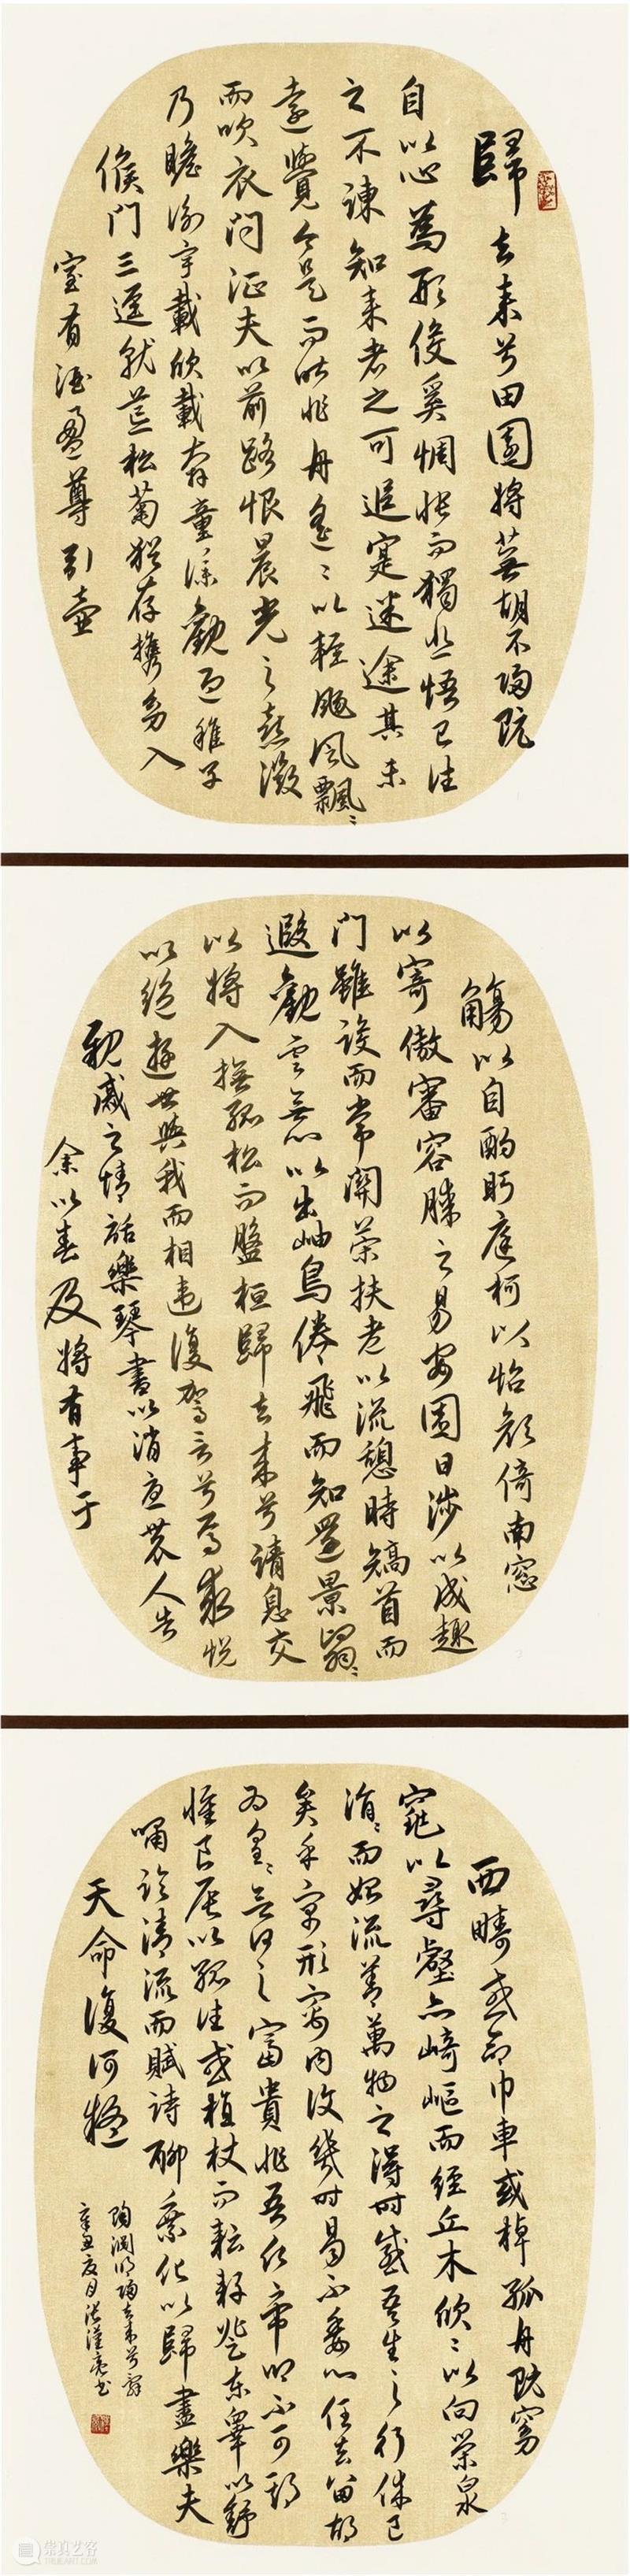 歸去來兮田園將蕪胡不歸既
自以心為形役奚惆悵而獨悲悟已往
之不諫知來者之可追寔迷途其未
遠覺今是而昨非舟遙〻以輕颺風飄〻
而吹衣問征夫以前路恨晨光之熹微
乃瞻衡宇載欣載奔童僕歡迎稚子
候門三逕就荒松菊猶存攜幼入
室有酒盈尊引壺
觴以自酌眄庭柯以怡顏倚南窓
以寄傲審容膝之易安園日涉以成趣
門雖設而常關策扶老以流憩時矯首而
遐觀雲無心以出岫鳥倦飛而知還景翳〻
以將入撫孤松而盤桓歸去來兮請息交
以絕遊世與我而相違復駕言兮焉求悅
親戚之情話樂琴書以消憂農人告
余以春及將有事于
西疇或命巾車或棹孤舟既窈
窕以尋壑亦崎嶇而經丘木欣〻以向榮泉
涓〻而始流善萬物之得時感吾生之行休已
矣乎寓形宇內復幾時曷不委心任去留胡
為皇〻何之富貴非吾願帝鄉不可期
懷良辰以孤往或植杖而耘耔登東皋以舒
嘯臨清流而賦詩聊乘化以歸盡樂夫
天命復何疑
陶淵明歸去來兮辭
辛丑夏日張漢亮书
崇真艺客